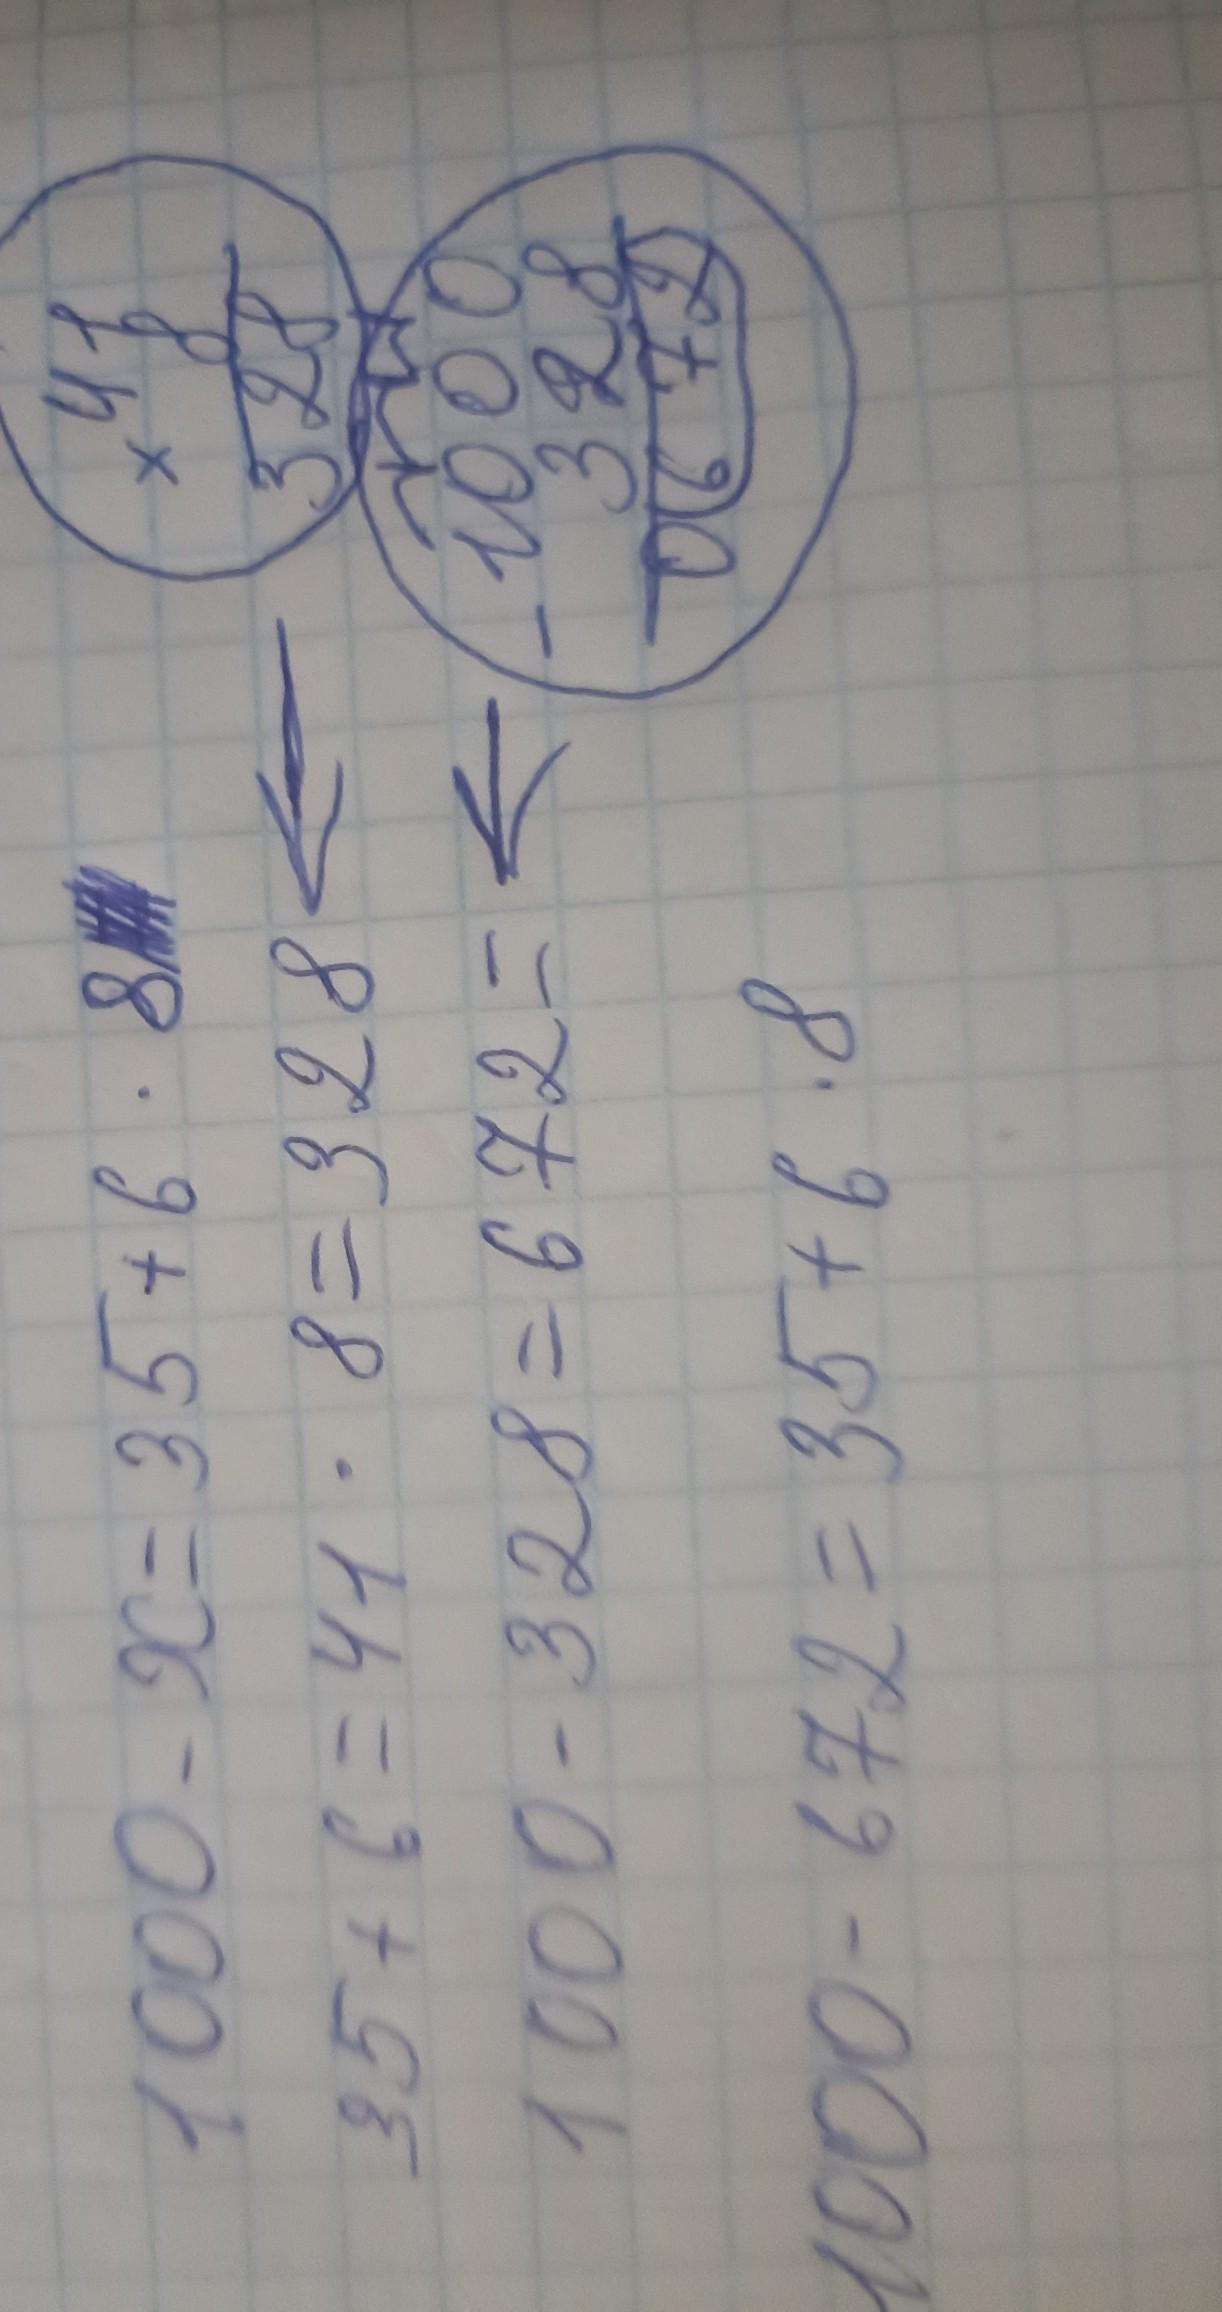 1000 - x = 35 + 6 · 8
35 + 6 = 41 · 8 = 328
1000 - 328 = 672 =
1000 - 672 = 35 + 6 · 8
41
× 8
328
- 1000
328
0672